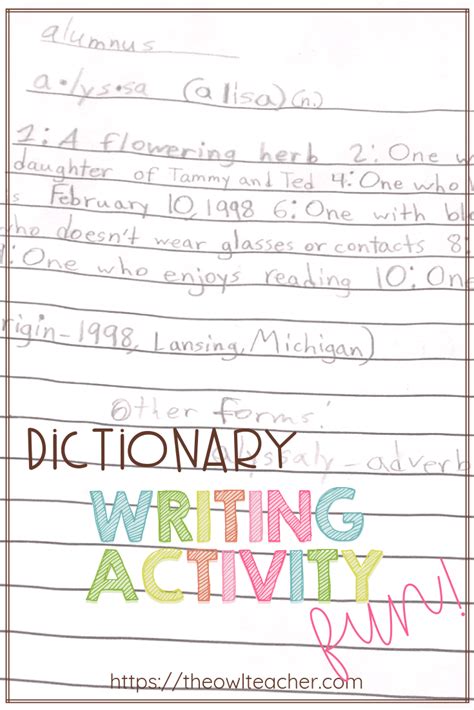 alumnus
a•lys•sa (alisa)(n.)
1: A flowering herb 2: One w
daughter of Tammy and Ted 4: One who
s February 10, 1998 6: One with bl
who doesn't wear glasses or contacts 8:
: One who enjoys reading 10: One
rigin-1998, Lansing, Michigan)
Other forms:
alyssaly - adverb
DICTIONARY
WRITING
ACTIVITY
fun!
https://theowlteacher.com